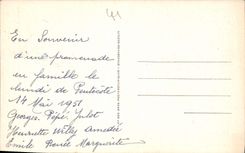 En Souvenir
d'une promenade
en famille le
lundi de Pentecôte
14 Mai 1951
Georges. Pépé. Julot
Henriette Willy Amédée
Emile Renée Marguerite